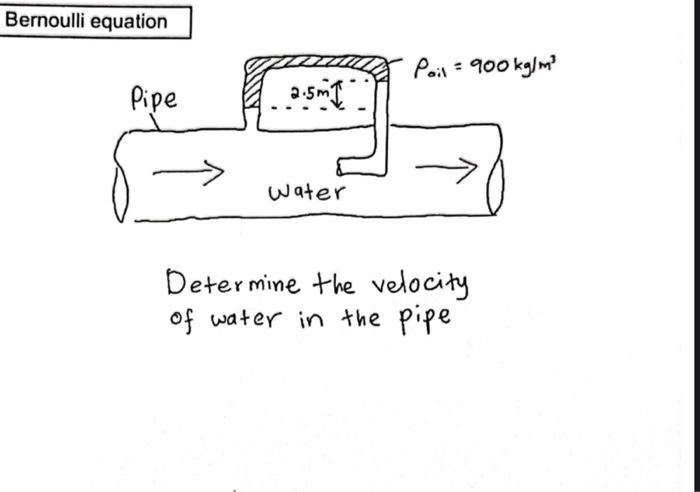 Bernoulli equation
ρoil = 900 kg/m³
2.5m
Pipe
Water
Determine the velocity
of water in the pipe